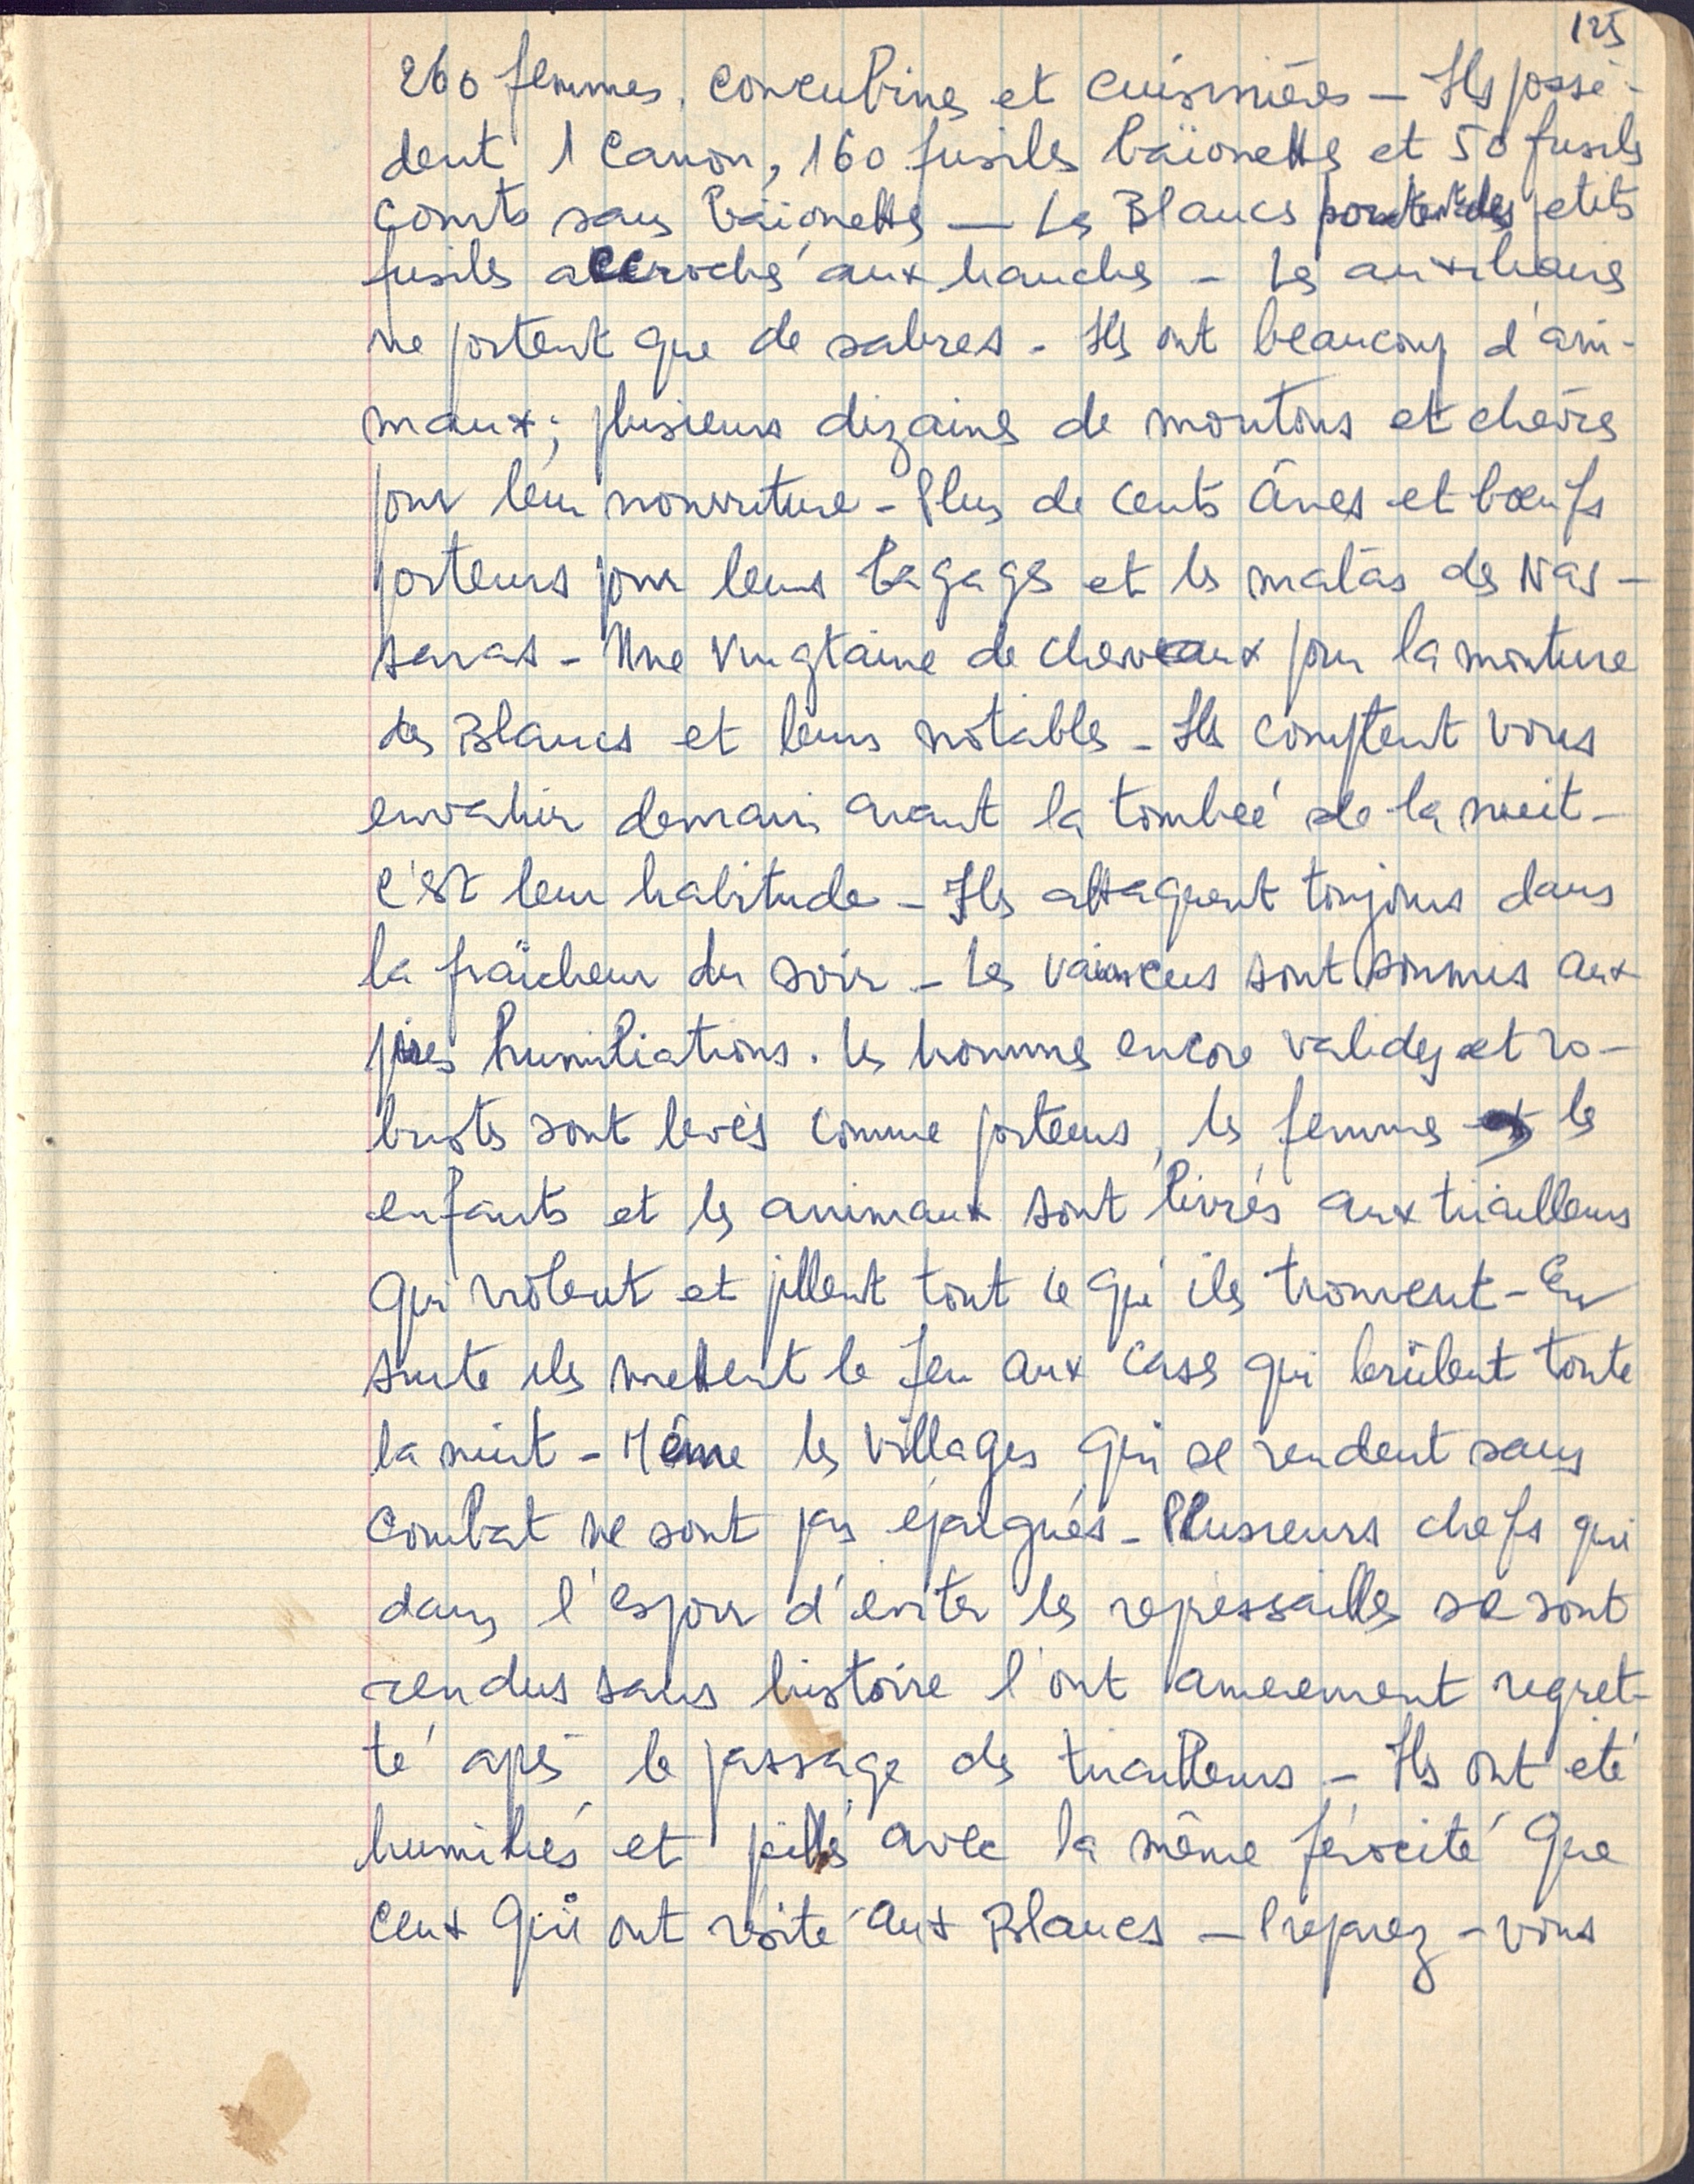 125
260 femmes, concubines et cuisinières – Ils possè-
dent 1 canon, 160 fusils baïonettes et 50 fusils
courts sans baïonettes — Les Blancs portent des petits
fusils accrochés aux hanches – Les auxiliaires
ne portent que de sabres – Ils ont beaucoup d'ani-
maux ; plusieurs dizaines de moutons et chèvres
pour leur nourriture – Plus de cents ânes et bœufs
porteurs pour leurs bagages et les malās des Nas-
saras – Une vingtaine de cheveaux pour la monture
des Blancs et leurs notables – Ils comptent vous
envahir demain avant la tombeé de la nuit –
c'est leur habitude – Ils attaquent toujours dans
la fraîcheur du soir – Les vaincus sont soumis aux
pires humiliations. les hommes encore valides et ro-
bustes sont levés comme porteurs, les femmes les
enfants et les animaux sont livrés aux tirailleurs
qui violent et pillent tout ce qu'ils trouvent – En
suite ils mettent le feu aux cases qui brûlent toute
la nuit – Même les villages qui se rendent sans
combat ne sont pas épargnés – Plusieurs chefs qui
dans l'espoir d'eviter les repressailles se sont
rendus sans histoire l'ont amerement regret-
té après le passage des tirailleurs – Ils ont été
humiliés et pillés avec la même férocité que
ceux qui ont résité aux Blancs – Preparez – vous